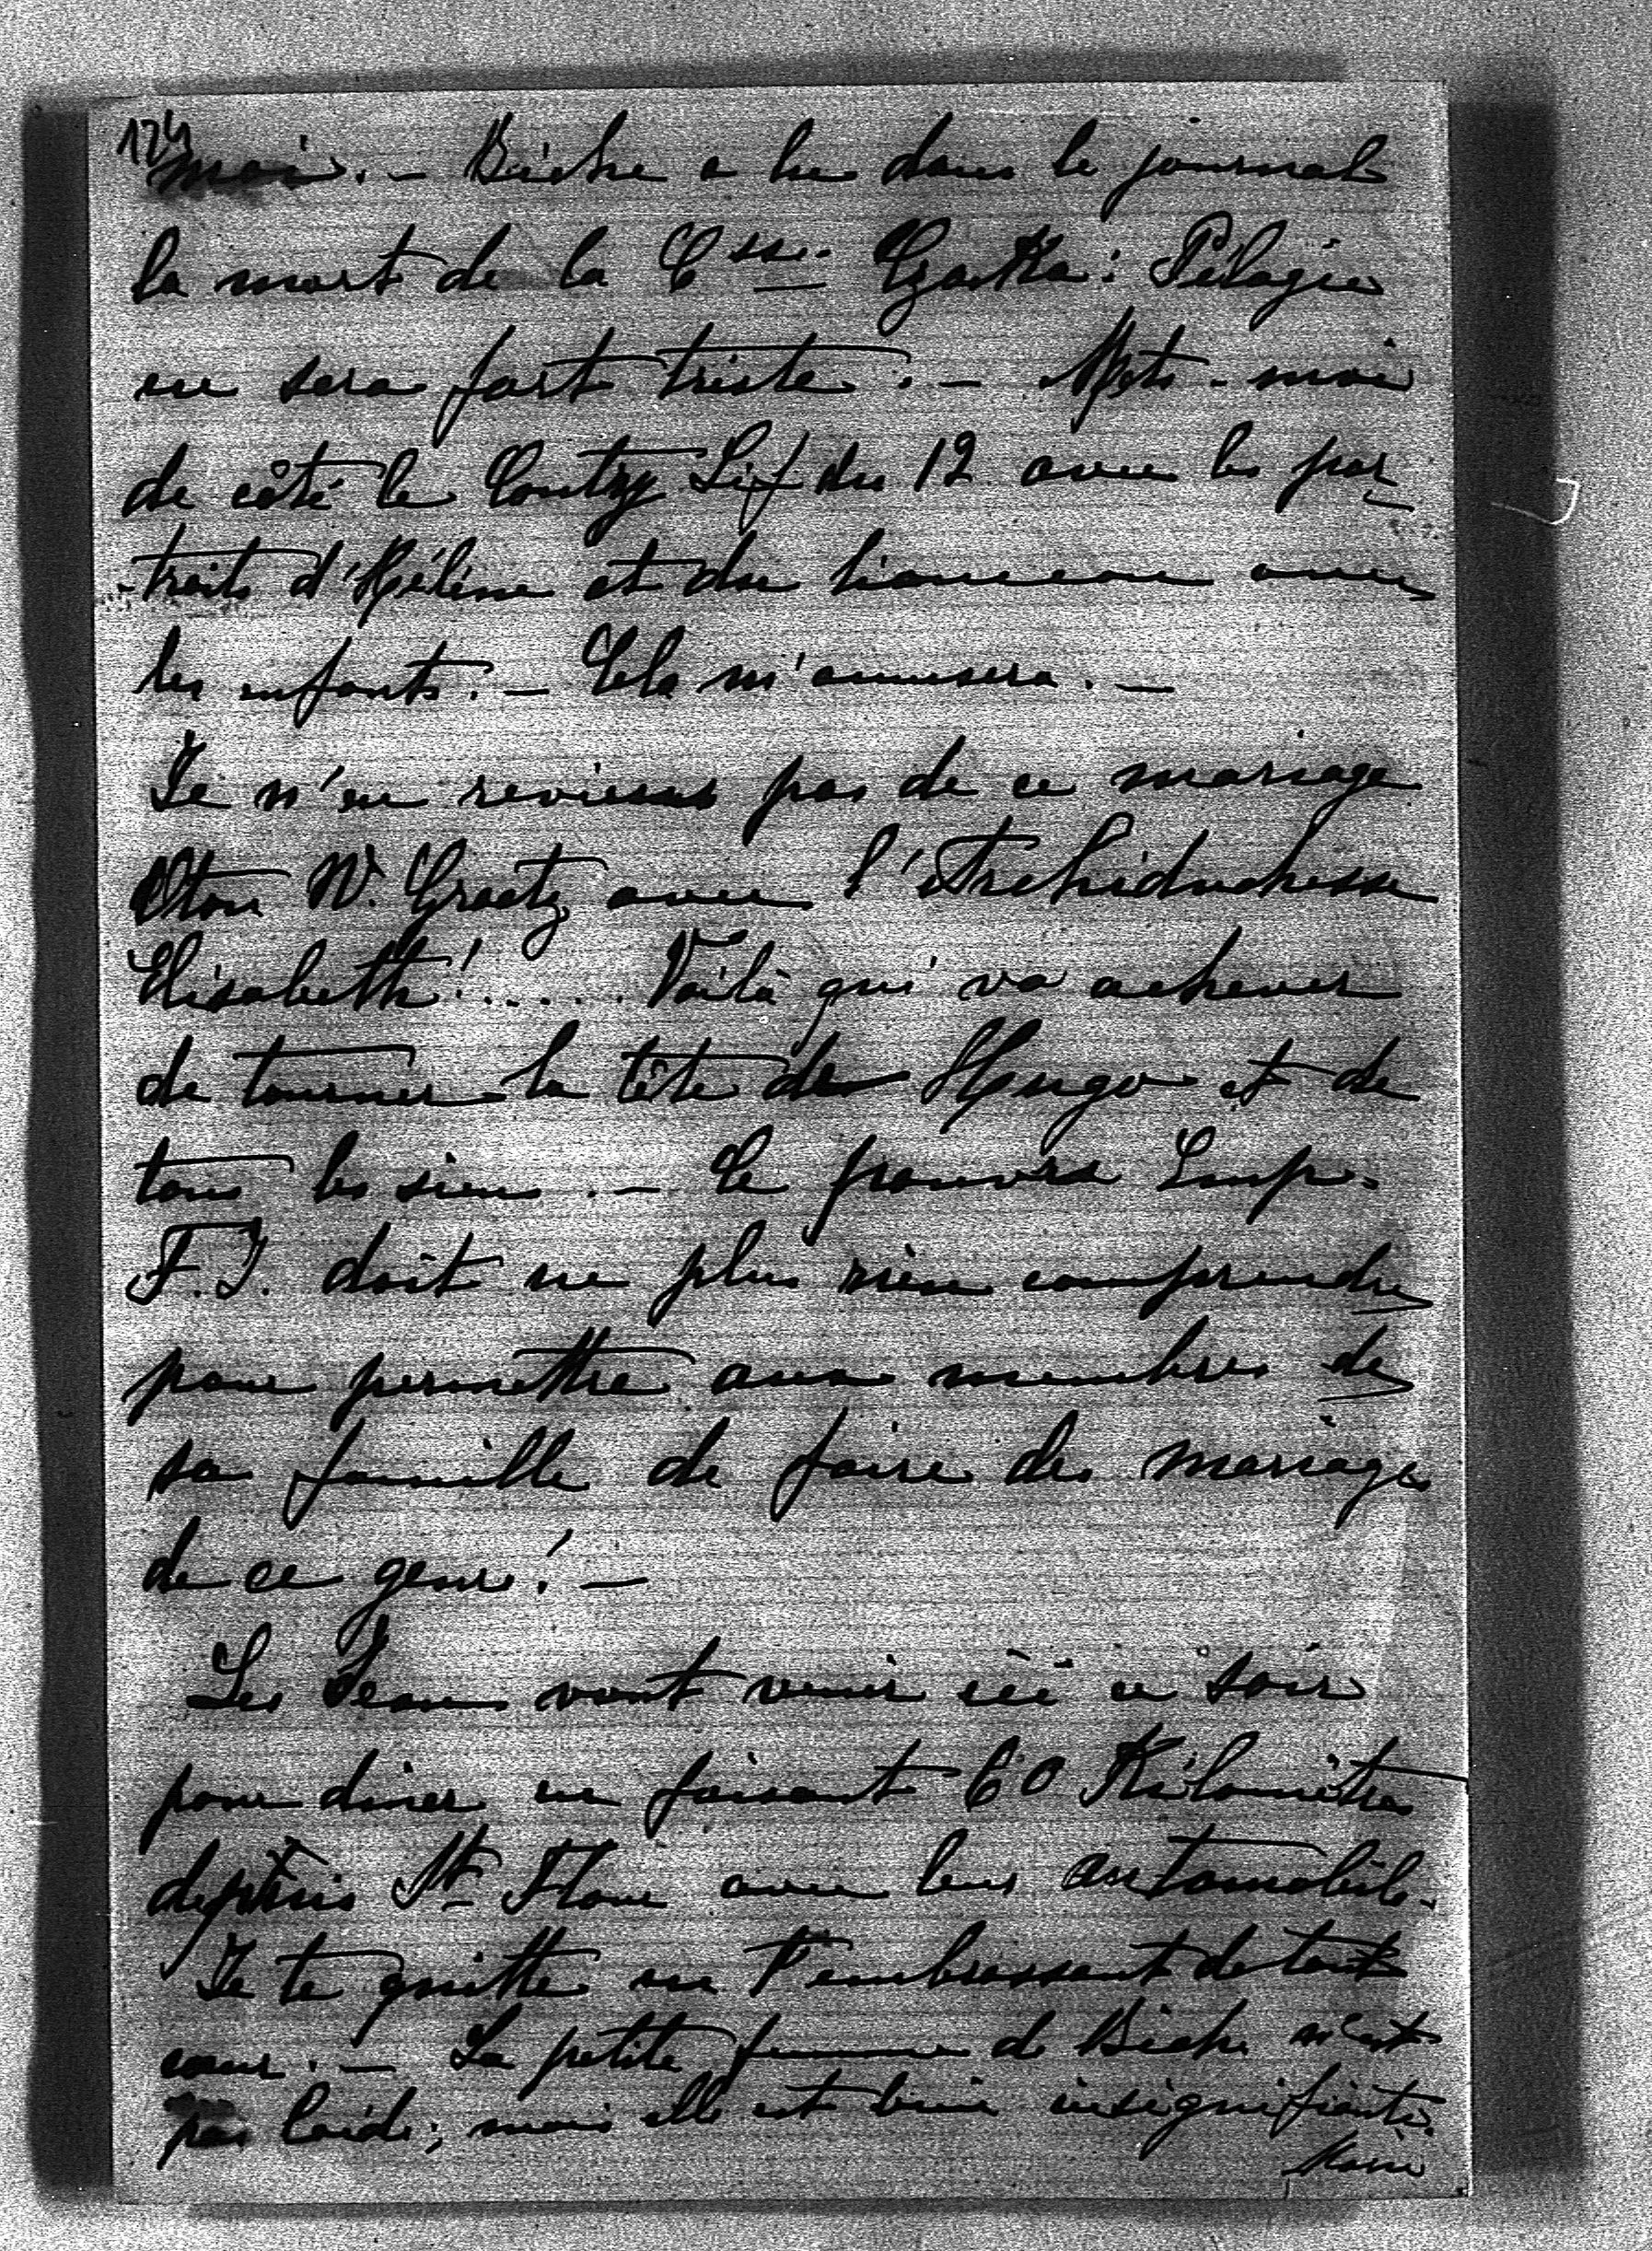 124
moi. – Biche a lu dans le journal
la mort de la Csse. Czacka: Pélagie
en sera fort triste. – Mets-moi
de côté le Contry Lif du 12 avec les por-
traits d'Hélène et du lionceau avec
les enfants. – Cela m'amusera. –
Je n'en reviens pas de ce mariage
Otton W. Graetz avec l'Archiduchesse
Elisabeth!...... Voilà qui va achever
de tourner la tête de Hugo et de
tous les siens. – Le pauvre Emp.
F.J. doit ne plus rien comprendre
pour permettre aux membres de
sa famille de faire des mariages
de ce genre! –
Les Jean vont venir ici ce soir
pour diner en faisant 60 Kilomètres
depuis St Flour avec leur automobile.
Je te quitte en t'embrassant de tout
cœur. – La petite femme de Biche n'est
pas laide; mais elle est bien insignifiante.
Marie